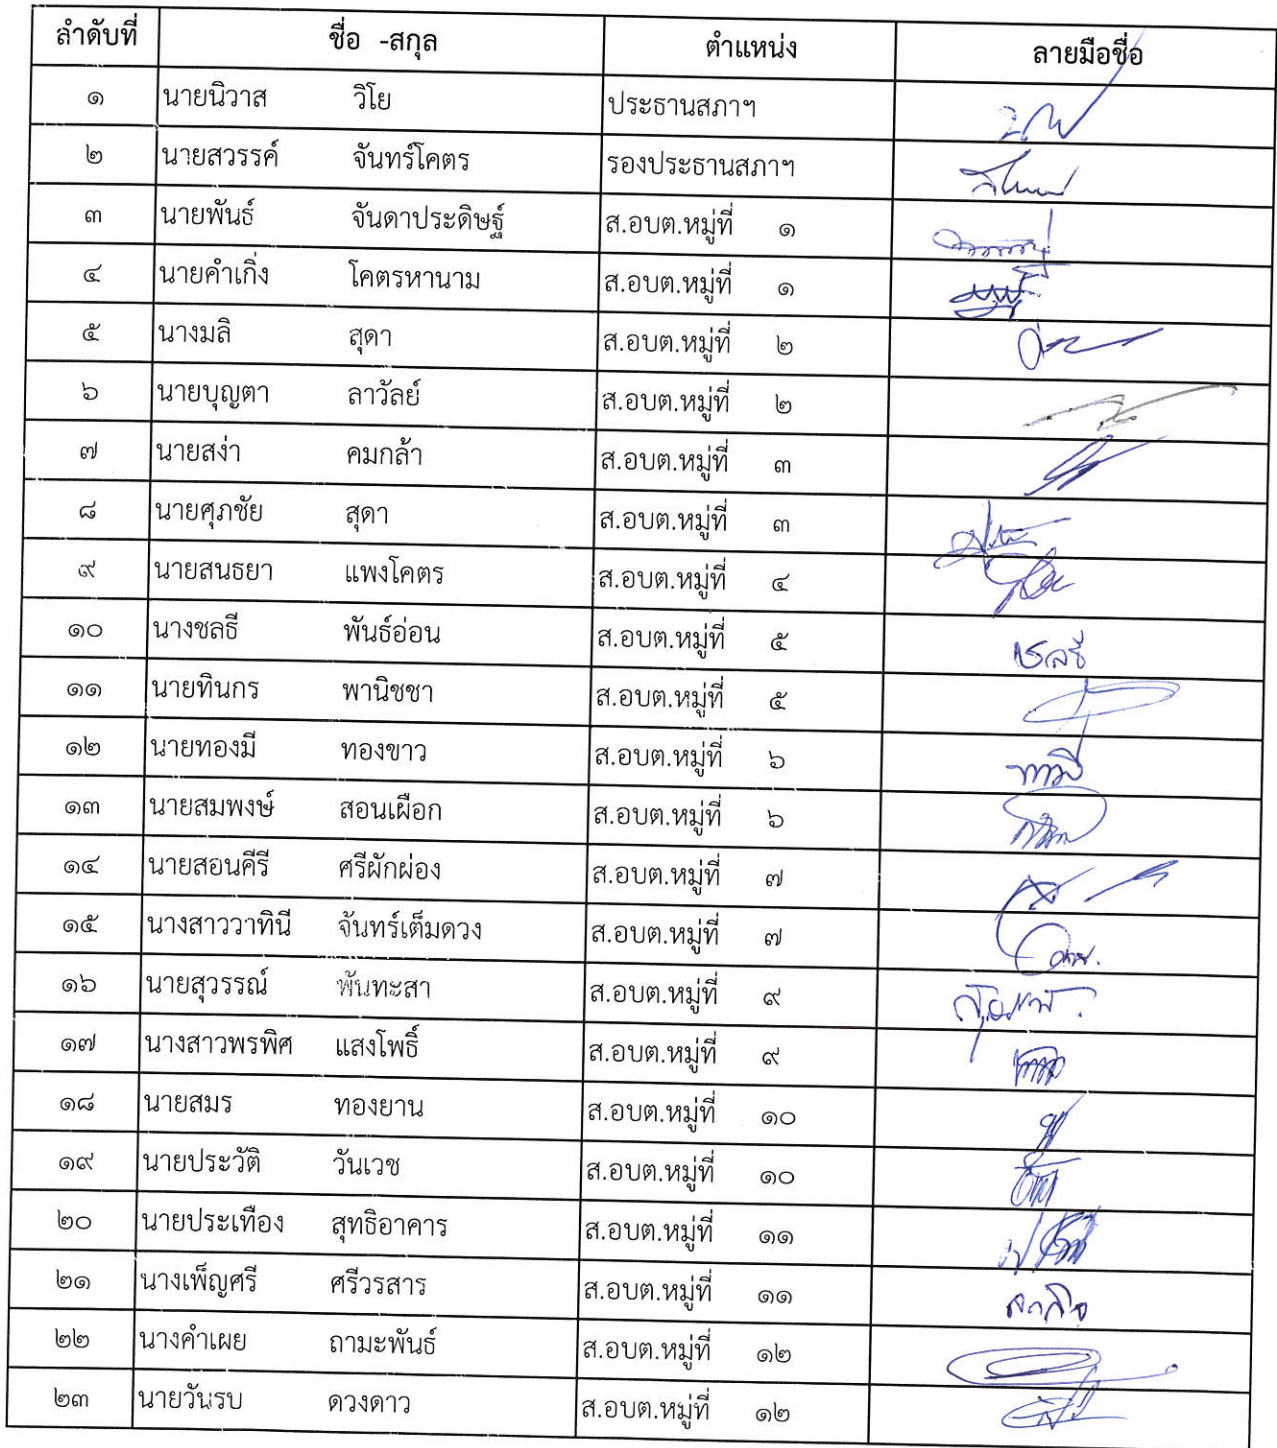 ลำดับที่ ชื่อ -สกุล ตำแหน่ง ลายมือชื่อ
๑ นายนิวาส วิโย ประธานสภาฯ
๒ นายสวรรค์ จันทร์โคตร รองประธานสภาฯ
๓ นายพันธ์ จันดาประดิษฐ์ ส.อบต.หมู่ที่ ๑
๔ นายคำเกิ่ง โคตรหานาม ส.อบต.หมู่ที่ ๑
๕ นางมลิ สุดา ส.อบต.หมู่ที่ ๒
๖ นายบุญตา ลาวัลย์ ส.อบต.หมู่ที่ ๒
๗ นายสง่า คมกล้า ส.อบต.หมู่ที่ ๓
๘ นายศุภชัย สุดา ส.อบต.หมู่ที่ ๓
๙ นายสนธยา แพงโคตร ส.อบต.หมู่ที่ ๔
๑๐ นางชลธี พันธ์อ่อน ส.อบต.หมู่ที่ ๕ ชลธี
๑๑ นายทินกร พานิชชา ส.อบต.หมู่ที่ ๕
๑๒ นายทองมี ทองขาว ส.อบต.หมู่ที่ ๖
๑๓ นายสมพงษ์ สอนเผือก ส.อบต.หมู่ที่ ๖
๑๔ นายสอนคีรี ศรีผักผ่อง ส.อบต.หมู่ที่ ๗
๑๕ นางสาววาทินี จันทร์เต็มดวง ส.อบต.หมู่ที่ ๗
๑๖ นายสุวรรณ์ พันทะสา ส.อบต.หมู่ที่ ๙
๑๗ นางสาวพรพิศ แสงโพธิ์ ส.อบต.หมู่ที่ ๙
๑๘ นายสมร ทองยาน ส.อบต.หมู่ที่ ๑๐
๑๙ นายประวัติ วันเวช ส.อบต.หมู่ที่ ๑๐
๒๐ นายประเทือง สุทธิอาคาร ส.อบต.หมู่ที่ ๑๑
๒๑ นางเพ็ญศรี ศรีวรสาร ส.อบต.หมู่ที่ ๑๑
๒๒ นางคำเผย ถามะพันธ์ ส.อบต.หมู่ที่ ๑๒
๒๓ นายวันรบ ดวงดาว ส.อบต.หมู่ที่ ๑๒